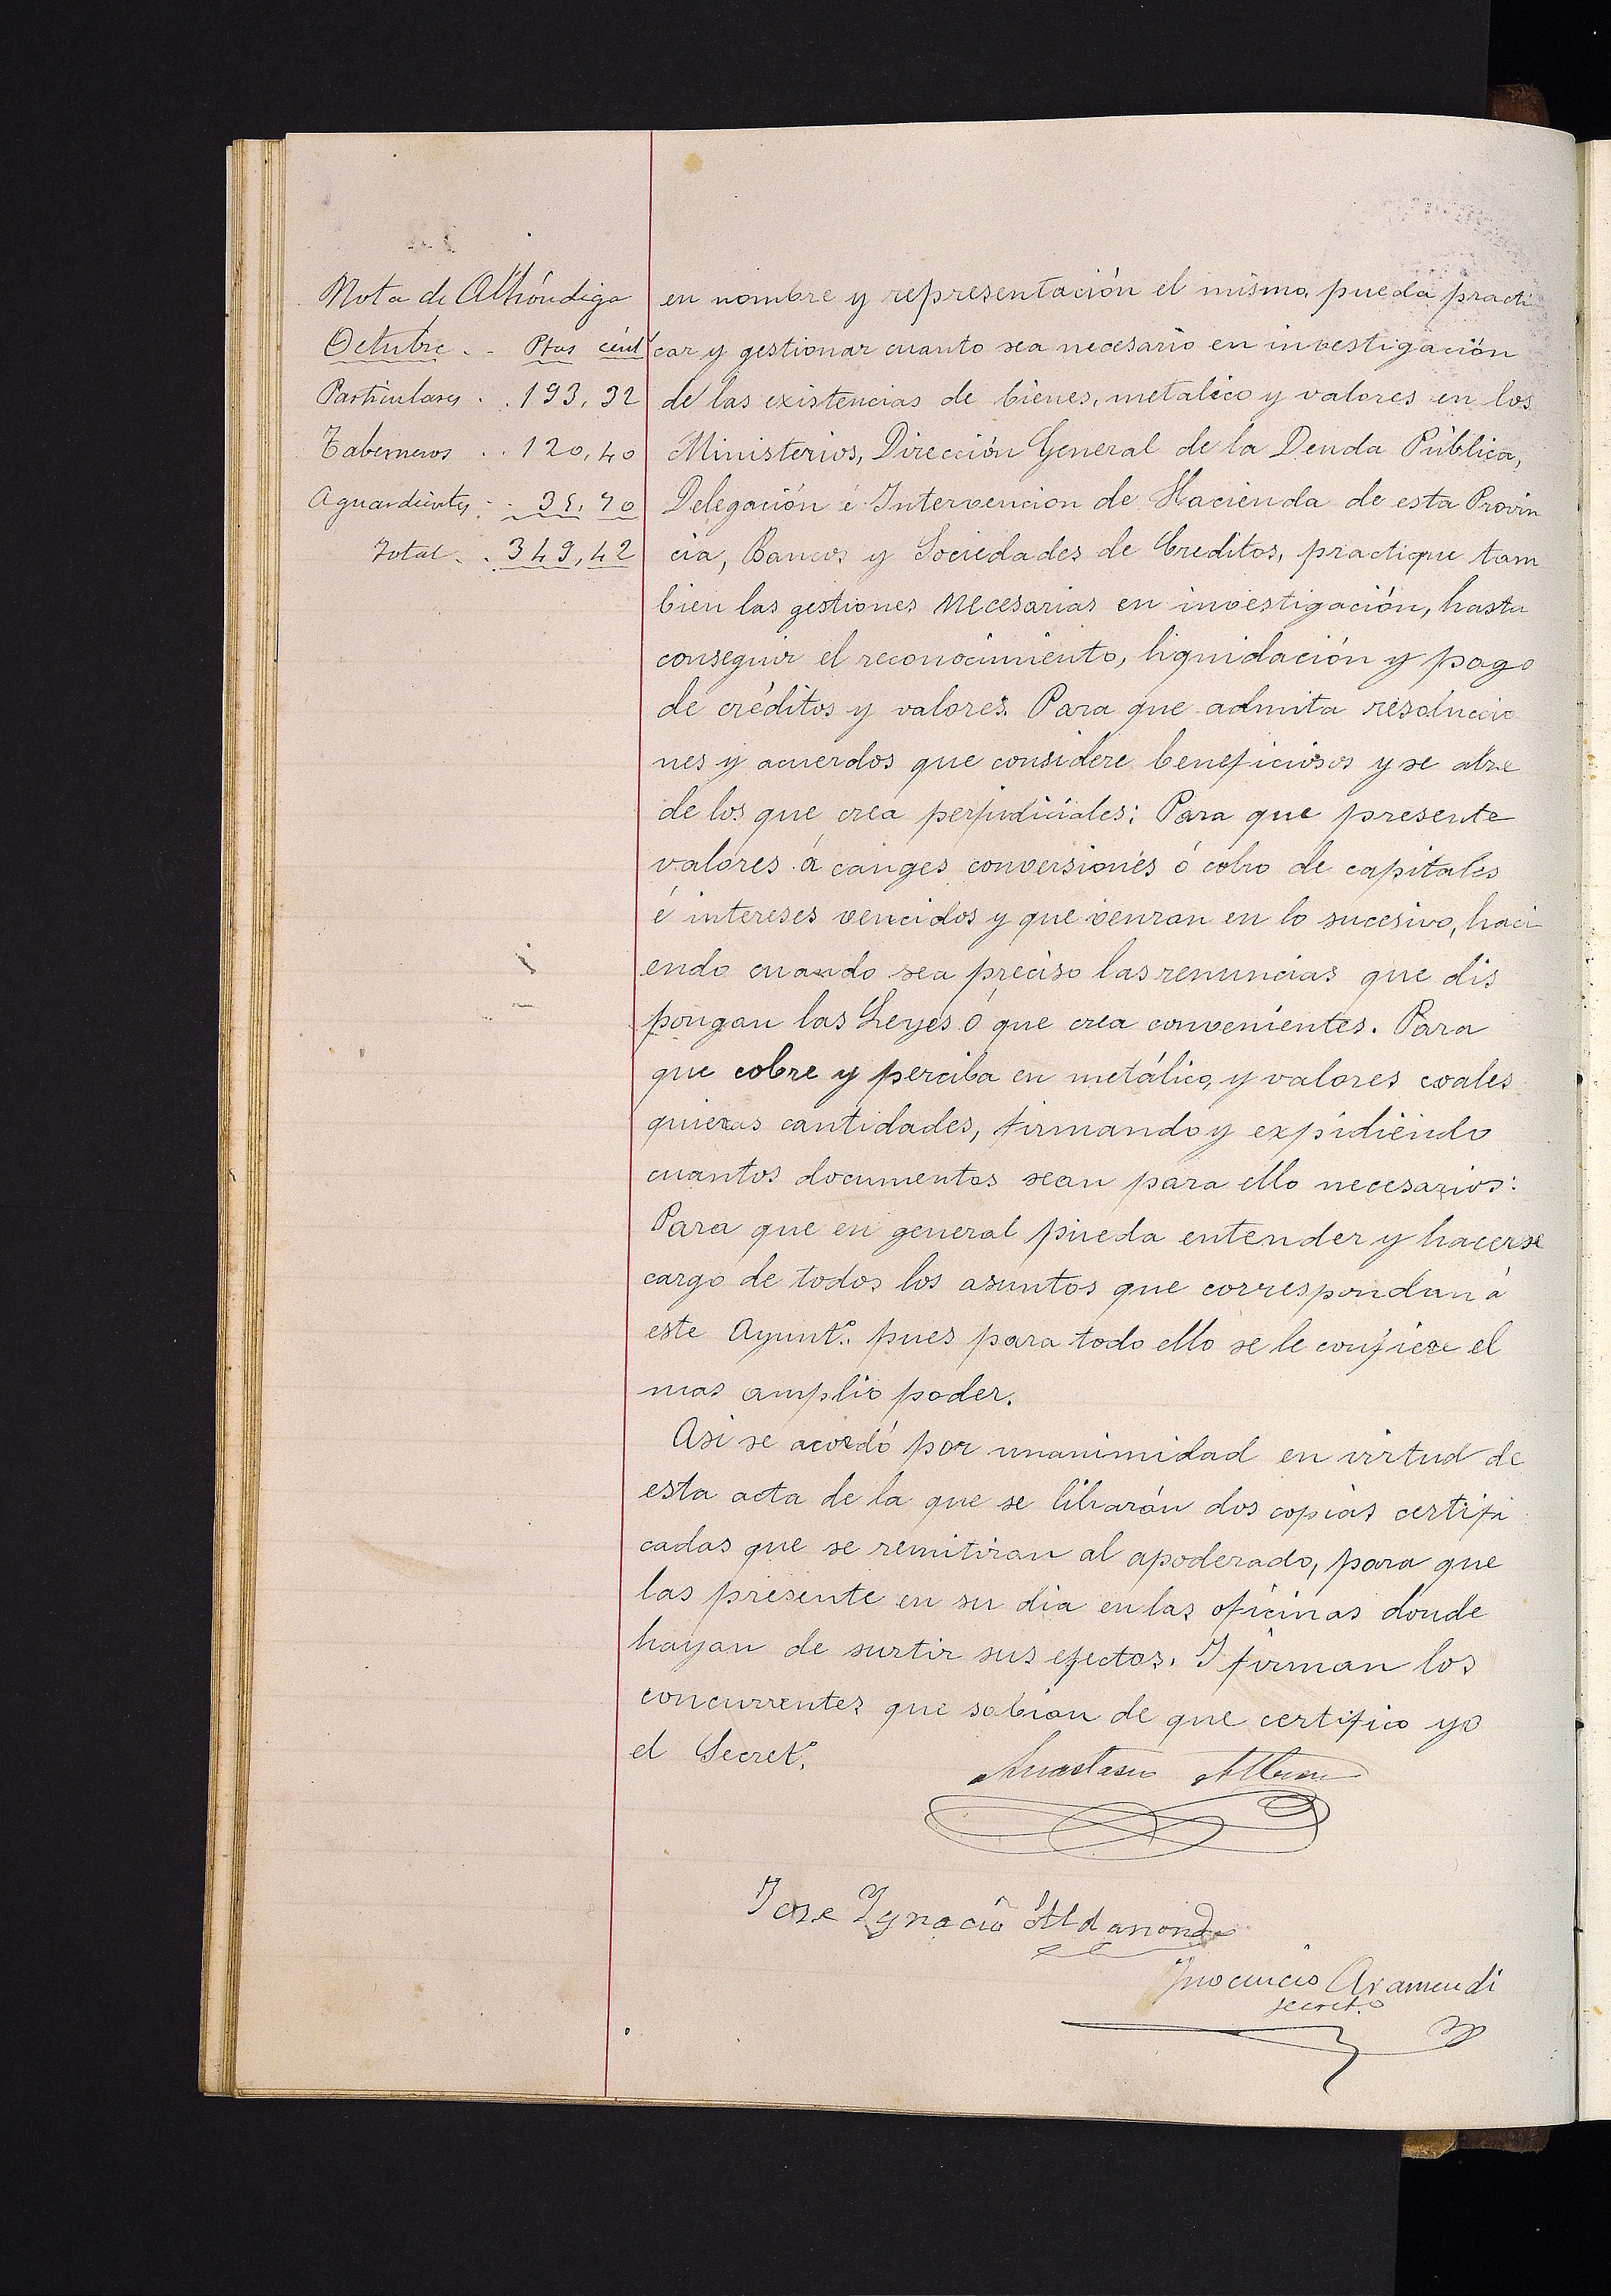 Nota de Alhóndiga
Octubre . . Ptas cént
Particulares . . 193,32
Taberneros . . 120,40
Aguardientes . . 35,70
Total . . 349,42
en nombre y representación el mismo, pueda practi
car y gestionar cuanto sea necesario en investigación
de las existencias de bienes, metalico y valores en los
Ministerios, Dirección General de la Deuda Pública,
Delegación é Intervencion de Hacienda de esta Provin
cia, Bancos y Sociedades de Creditos, practique tam
bien las gestiones necesarias en investigación, hasta
conseguir el reconocimiento, liquidación y pago
de créditos y valores. Para que admita resolucio
nes y acuerdos que considere beneficiosos y se alze
de los que crea perjudiciales: Para que presente
valores á canges conversiones ó cobro de capitales
é intereses vencidos y que venzan en lo sucesivo, haci
endo cuando sea preciso las renuncias que dis
pongan las Leyes ó que crea convenientes. Para
que cobre y perciba en metálico, y valores cuales
quieras cantidades, firmando y expidiendo
cuantos documentos sean para ello necesarios:
Para que en general pueda entender y hacerse
cargo de todos los asuntos que correspondan á
este Ayunt.º pues para todo ello se le confiere el
mas amplio poder.
Asi se acordó por unanimidad en virtud de
esta acta de la que se librarán dos copias certifi
cadas que se remitiran al apoderado, para que
las presente en su dia en las oficinas donde
hayan de surtir sus efectos. I firman los
concurrentes que sabian de que certifico yo
el Secret.º
Anastasio
Jose Ygnacio Aldasoro
Ynocencio Aramendi
secret.º